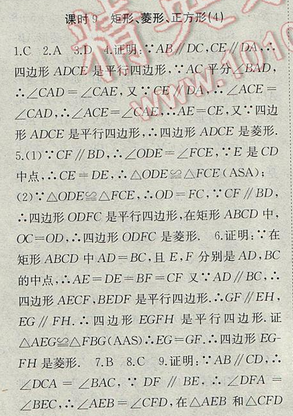 课时9 矩形、菱形、正方形(4)
1.C 2.A 3.D 4.证明:∵AB∥DC,CE∥DA,∴
四边形ADCE是平行四边形,∵AC平分∠BAD,
∴∠CAD=∠CAE,又∵CE∥DA,∴∠ACE=
∠CAD,∴∠ACE=∠CAE,∴AE=CE,又∵四边
形ADCE是平行四边形,∴四边形ADCE是菱形.
5.(1)∵CF∥BD,∴∠ODE=∠FCE,∵E是CD
中点,∴CE=DE,∴△ODE≌△FCE(ASA);
(2)∵△ODE≌△FCE,∴OD=FC,∵CF∥BD,
∴四边形ODFC是平行四边形,在矩形ABCD中,
OC=OD,∴四边形ODFC是菱形. 6.证明:∵在
矩形ABCD中AD=BC,且E,F分别是AD,BC
的中点,∴AE=DE=BF=CF又∵AD∥BC,∴
四边形AECF,BEDF是平行四边形,∴GF∥EH,
EG∥FH.∴四边形EGFH是平行四边形.证
△AEG≌△FBG(AAS)∴EG=GF.∴四边形EG-
FH是菱形. 7.B 8.C 9.证明:∵AB∥CD,∴
∠DCA=∠BAC,∵DF∥BE,∴∠DFA=
∠BEC,∴∠AEB=∠CFD,在△AEB和△CFD